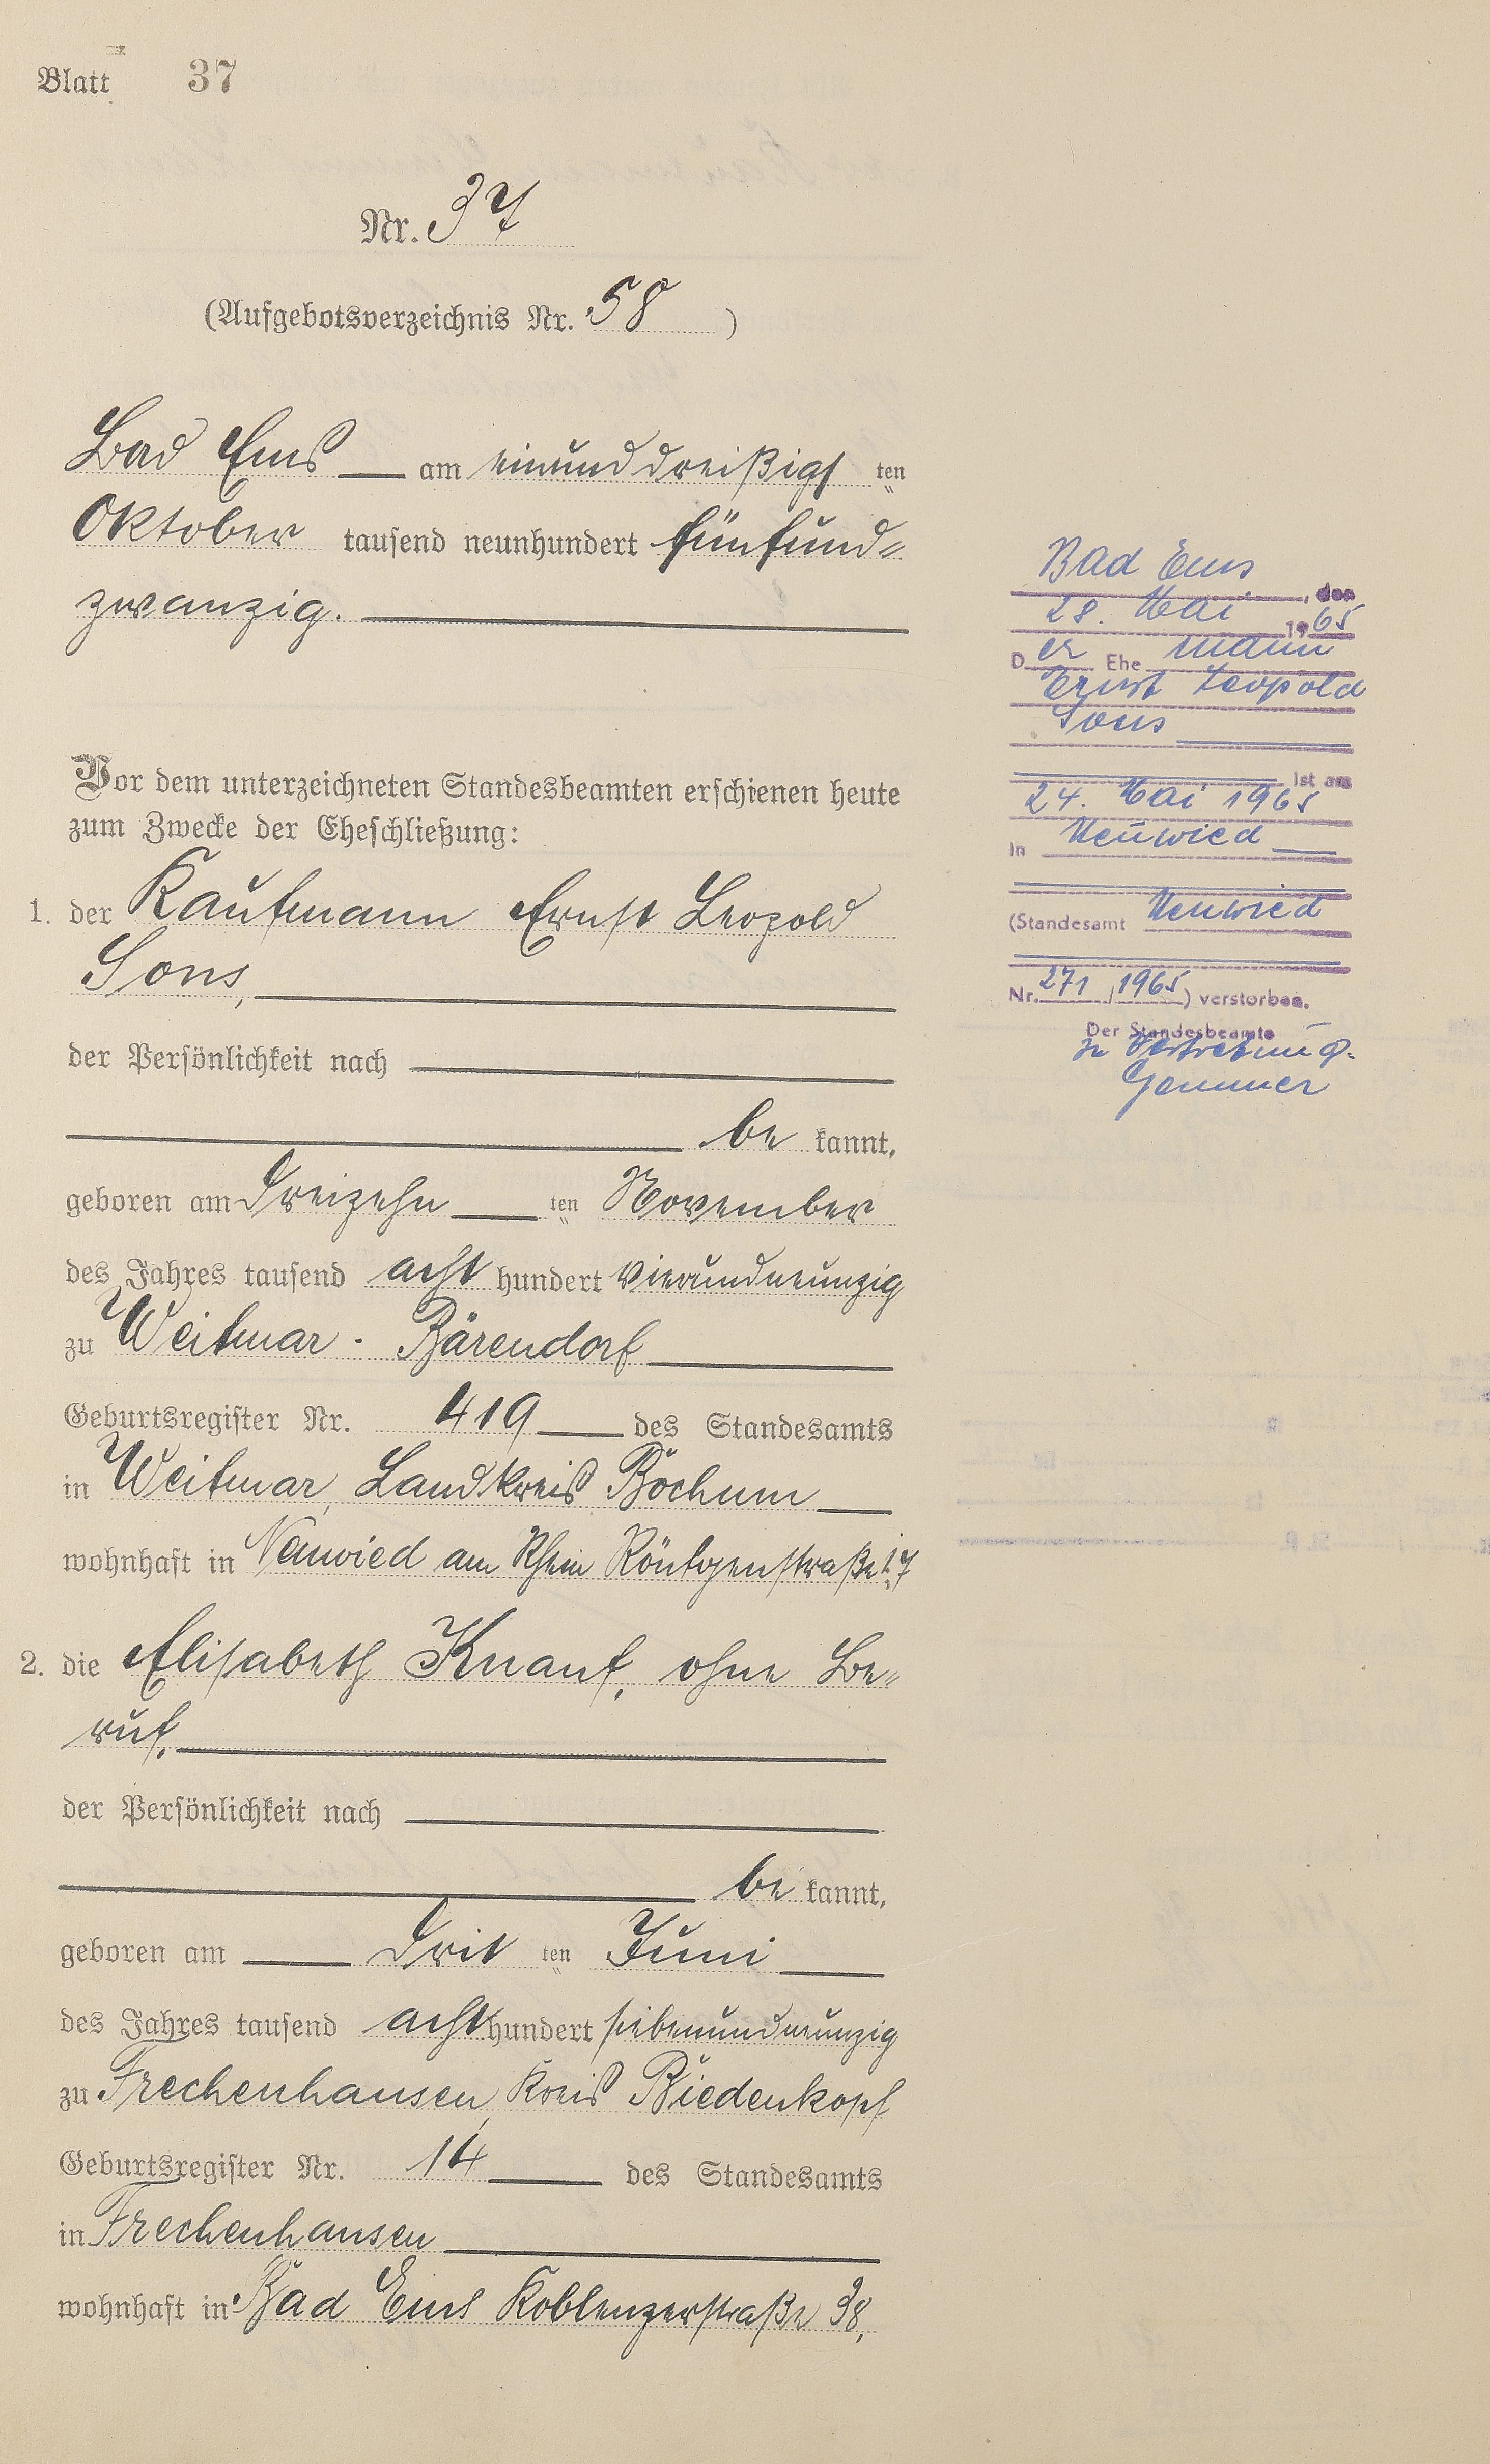 Blatt 37
Nr. 37
(Aufgebotsverzeichnis Nr. 58 )
Bad Ems am einunddreißigs ten
Oktober tausend neunhundert fünfund=
zwanzig.
Vor dem unterzeichneten Standesbeamten erschienen heute
zum Zwecke der Eheschließung:
1. der Kaufmann Ernst Leopold
Sons,
der Persönlichkeit nach
be kannt,
geboren am dreizehn ten November
des Jahres tausend acht hundert vierundneunzig
zu Weitmar - Bärendorf
Geburtsregister Nr. 419 des Standesamts
in Weitmar, Landkreis Bochum
wohnhaft in Neuwied am Rhein Röntgenstraße 17
2. die Elisabeth Knauf, ohne Be=
ruf,
der Persönlichkeit nach
be kannt,
geboren am drit ten Juni
des Jahres tausend acht hundert siebenundneunzig
zu Frechenhausen, Kreis Biedenkopf
Geburtsregister Nr. 14 des Standesamts
in Frechenhausen
wohnhaft in Bad Ems Koblenzerstraße 38,
Bad Ems, den
28. Mai 1965
D er Ehe mann
Ernst Leopold
Sons
ist am
24. Mai 1965
in Neuwied
(Standesamt Neuwied
Nr. 271 / 1965) verstorben.
Der Standesbeamte
In Vertretung.
Gemmer